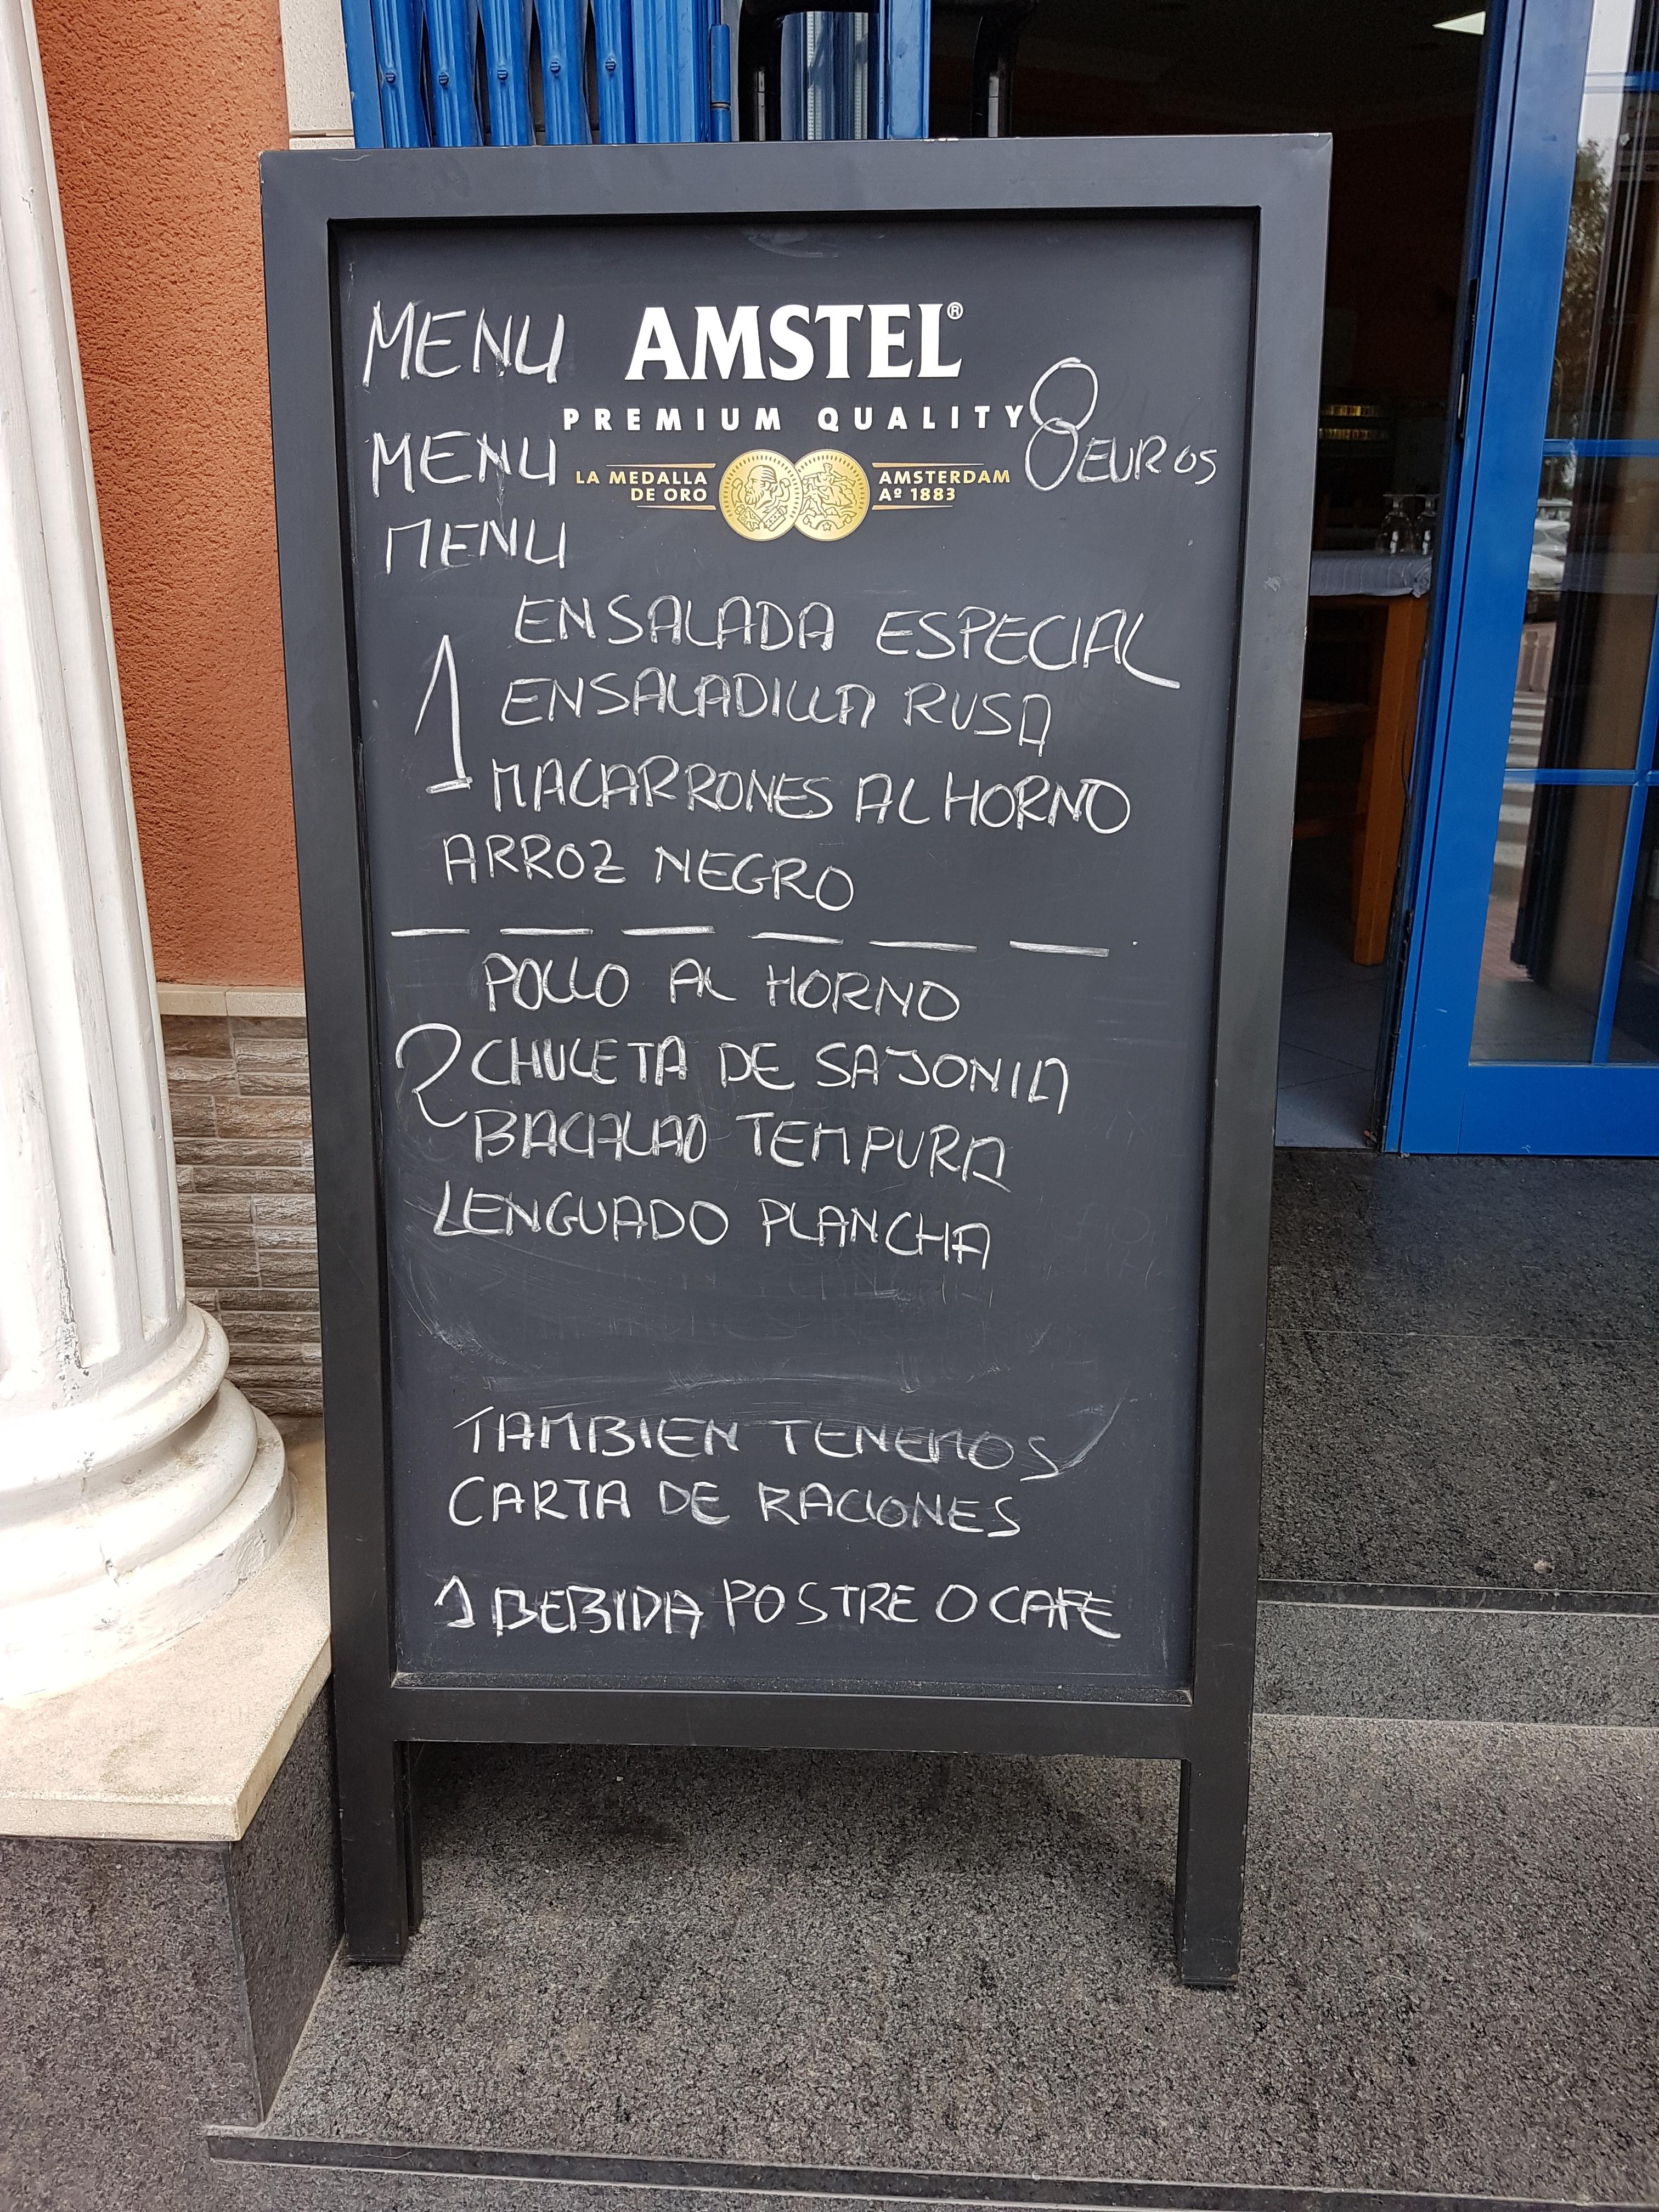 MENU AMSTEL®
PREMIUM QUALITY
MENU LA MEDALLA DE ORO AMSTERDAM Aº 1883 8 EUROS
MENU
ENSALADA ESPECIAL
1 ENSALADILLA RUSA
MACARRONES AL HORNO
ARROZ NEGRO
POLLO AL HORNO
2 CHULETA DE SAJONIA
BACALAO TEMPURA
LENGUADO PLANCHA
TAMBIEN TENEMOS
CARTA DE RACIONES
1 BEBIDA POSTRE O CAFE